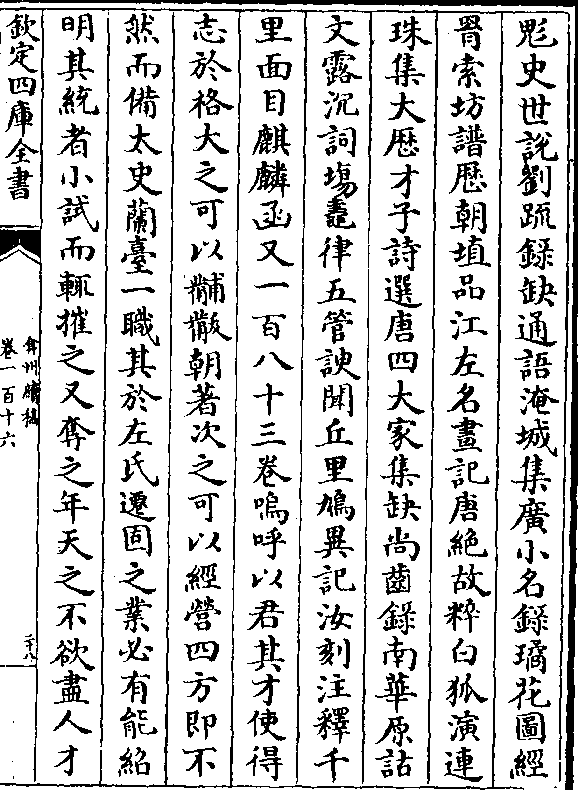 髡史世說劉疏錄缺通語淹城集廣小名錄璚花圖經
胥索坊譜歴朝埴品江左名畫記唐絶故粹白狐演連
珠集大歴才子詩選唐四大家集缺尚齒錄南華原詁
文露沉詞塲蠧律五管諛聞丘里鳩異記汝刻注釋千
里面目麒麟函又一百八十三卷嗚呼以君其才使得
志於格大之可以黼黻朝著次之可以經營四方即不
然而備太史蘭臺一職其於左氏遷固之業必有能紹
明其統者小試而輒摧之又奪之年天之不欲盡人才
欽定四庫全書
弇州續稿
卷一百十六
二十八